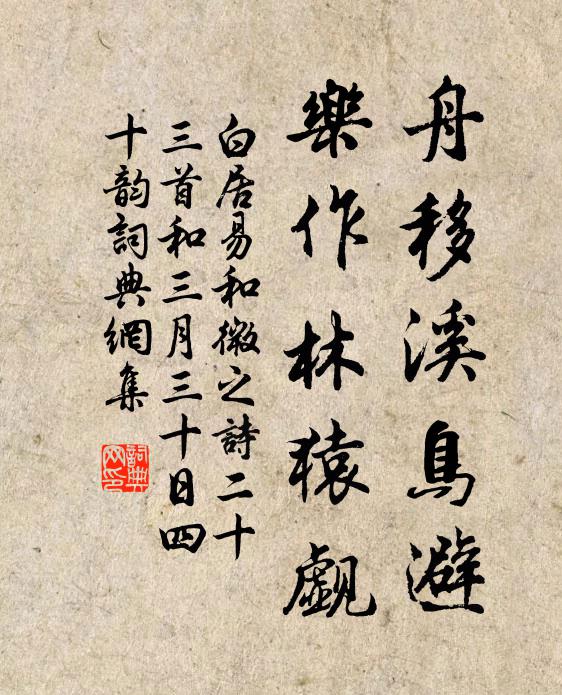 舟移溪鳥避
樂作林猿觑
白居易和微之詩二十
三首和三月三十日四
十韵詞典網集
詞典
网印